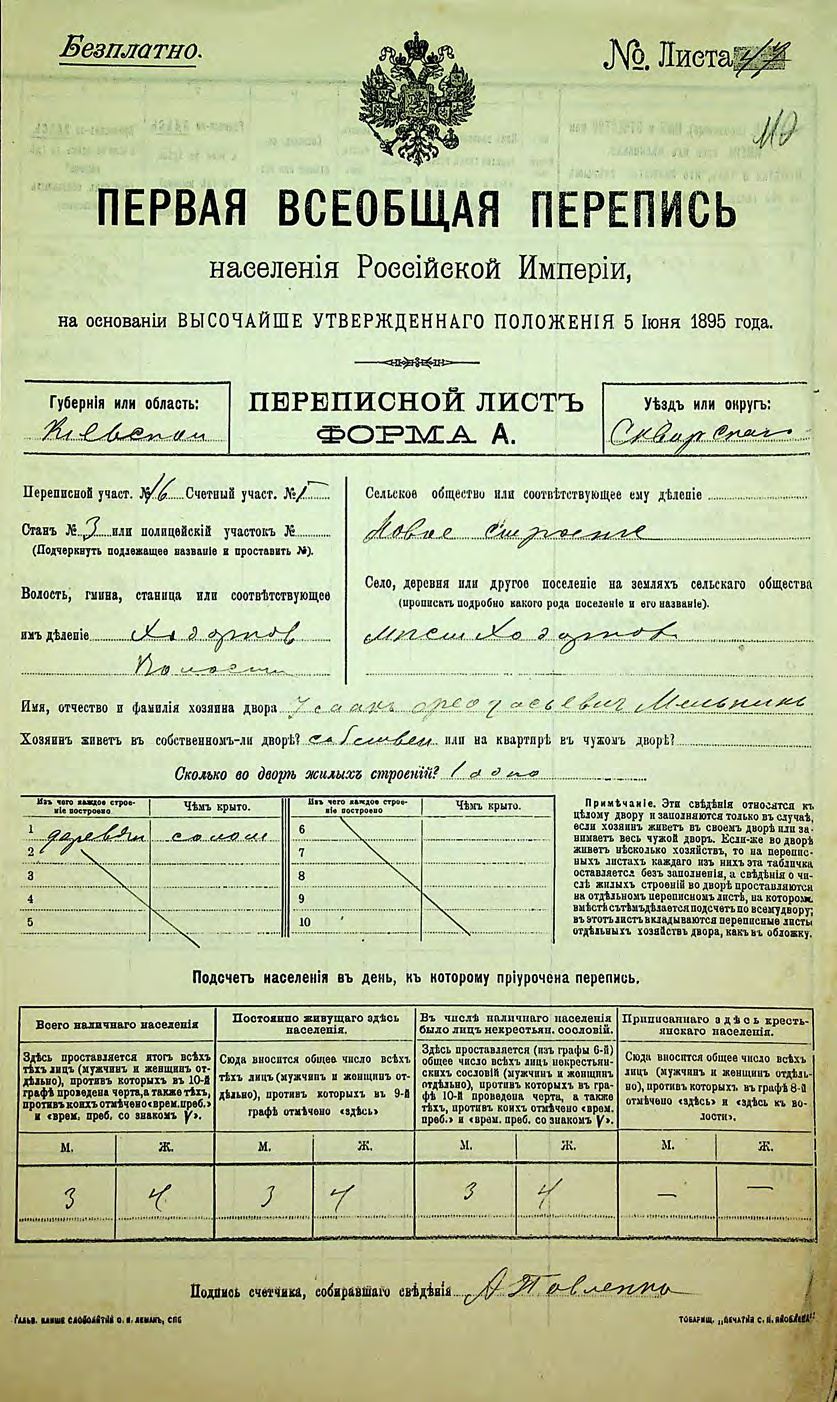 Безплатно.
№. Листа 47
110
ПЕРВАЯ ВСЕОБЩАЯ ПЕРЕПИСЬ
населенія Россійской Имперіи,
на основаніи ВЫСОЧАЙШЕ УТВЕРЖДЕННАГО ПОЛОЖЕНІЯ 5 Іюня 1895 года.
Губернія или область:
Кіевская
ПЕРЕПИСНОЙ ЛИСТЪ
ФОРМА А.
Уѣздъ или округъ:
Сквирскаго
Переписной участ. № 16 Счетный участ. №
Станъ № 3 или полицейскій участокъ №
(Подчеркнуть подлежащее названіе и проставить №).
Волость, гмина, станица или соотвѣтствующее
имъ дѣленіе Ходорков
Волости
Сельское общество или соотвѣтствующее ему дѣленіе
Новое Строеніе
Село, деревня или другое поселеніе на земляхъ сельскаго общества
(прописать подробно какого рода поселеніе и его названіе).
мѣст Ходорков
Имя, отчество и фамилія хозяина двора Исаакъ Мельникъ
Хозяинъ живетъ въ собственномъ-ли дворѣ? собствен или на квартирѣ въ чужомъ дворѣ?
Сколько во дворѣ жилыхъ строеній? 1 одно
Изъ чего каждое строе-
ніе построено
Чѣмъ крыто.
1 деревян солом
2
3
4
5
Изъ чего каждое строе-
ніе построено
Чѣмъ крыто.
6
7
8
9
10
Примѣчаніе. Эти свѣдѣнія относятся къ
цѣлому двору и заполняются только въ случаѣ,
если хозяинъ живетъ въ своемъ дворѣ или за-
нимаетъ весь чужой дворъ. Если-же во дворѣ
живетъ нѣсколько хозяйствъ, то на перепис-
ныхъ листахъ каждаго изъ нихъ эта табличка
оставляется безъ заполненія, а свѣдѣнія о чи-
слѣ жилыхъ строеній во дворѣ проставляются
на отдѣльномъ переписномъ листѣ, на которомъ
вмѣстѣ съ тѣмъ дѣлается подсчетъ по всему двору;
въ этотъ листъ вкладываются переписные листы
отдѣльныхъ хозяйствъ двора, какъ въ обложку.
Подсчетъ населенія въ день, къ которому пріурочена перепись.
Всего наличнаго населенія
Здѣсь проставляется итогъ всѣхъ
тѣхъ лицъ (мужчинъ и женщинъ от-
дѣльно), противъ которыхъ въ 10-й
графѣ проведена черта, а также тѣхъ,
противъ коихъ отмѣчено «врем. преб.»
и «врем. преб. со знакомъ V».
Постоянно живущаго здѣсь
населенія.
Сюда вносится общее число всѣхъ
тѣхъ лицъ (мужчинъ и женщинъ от-
дѣльно), противъ которыхъ въ 9-й
графѣ отмѣчено «здѣсь»
Въ числѣ наличнаго населенія
было лицъ некрестьян. сословій.
Здѣсь проставляется (изъ графы 6-й)
общее число всѣхъ лицъ некрестьян-
скихъ сословій (мужчинъ и женщинъ
отдѣльно), противъ которыхъ въ гра-
фѣ 10-й проведена черта, а также
тѣхъ, противъ коихъ отмѣчено «врем.
преб.» и «врем. преб. со знакомъ V».
Приписаннаго здѣсь кресть-
янскаго населенія.
Сюда вносится общее число всѣхъ
лицъ (мужчинъ и женщинъ отдѣль-
но), противъ которыхъ въ графѣ 8-й
отмѣчено «здѣсь» и «здѣсь къ во-
лости».
М. Ж. М. Ж. М. Ж. М. Ж.
3 4 3 4 3 4 — —
Подпись счетчика, собиравшаго свѣдѣнія А Павленко
ГАЛЬВ. КЛИШЕ СЛОВОЛИТНИ О. И. ЛЕМАНЪ, СПБ
ТОВАРИЩ. „ПЕЧАТНЯ С. П. ЯКОВЛЕВА"